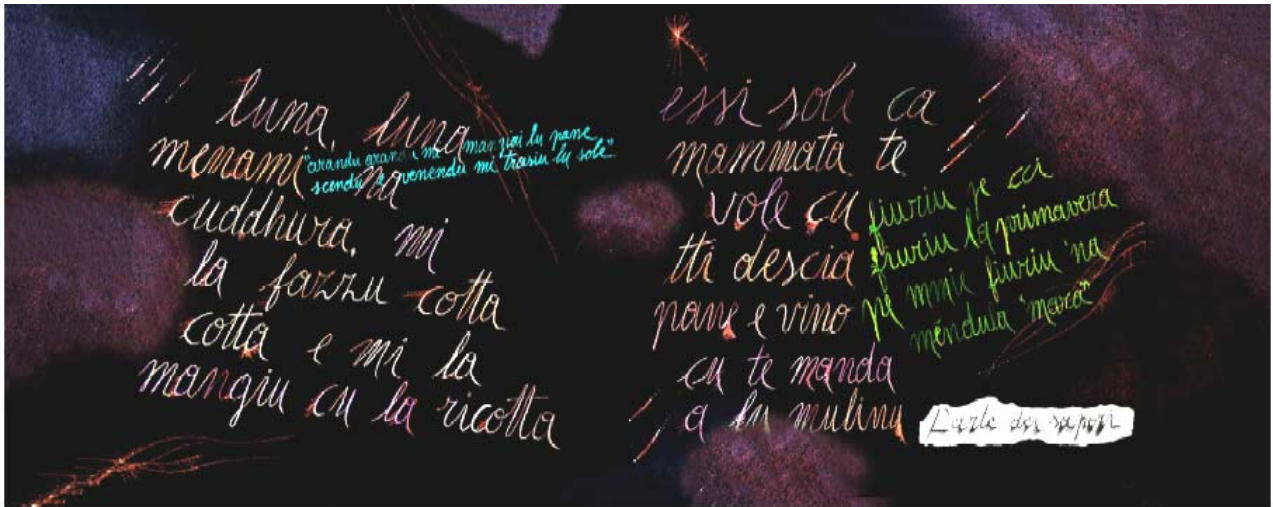 luna, luna
menami na
cuddhura, mi
la fazzu cotta
cotta e mi la
mangiu cu la ricotta
"arandu arandu mi mangiai lu pane
scendu e venendu mi trasiu lu sole"
essi sole ca
mammata te
vole cu
tti descia
pane e vino
cu te manda
a lu mulinu
fiuriu pe cci
fiuriu la primavera
pe mmie fiuriu 'na
méndula 'mara"
L'arte dei sapori